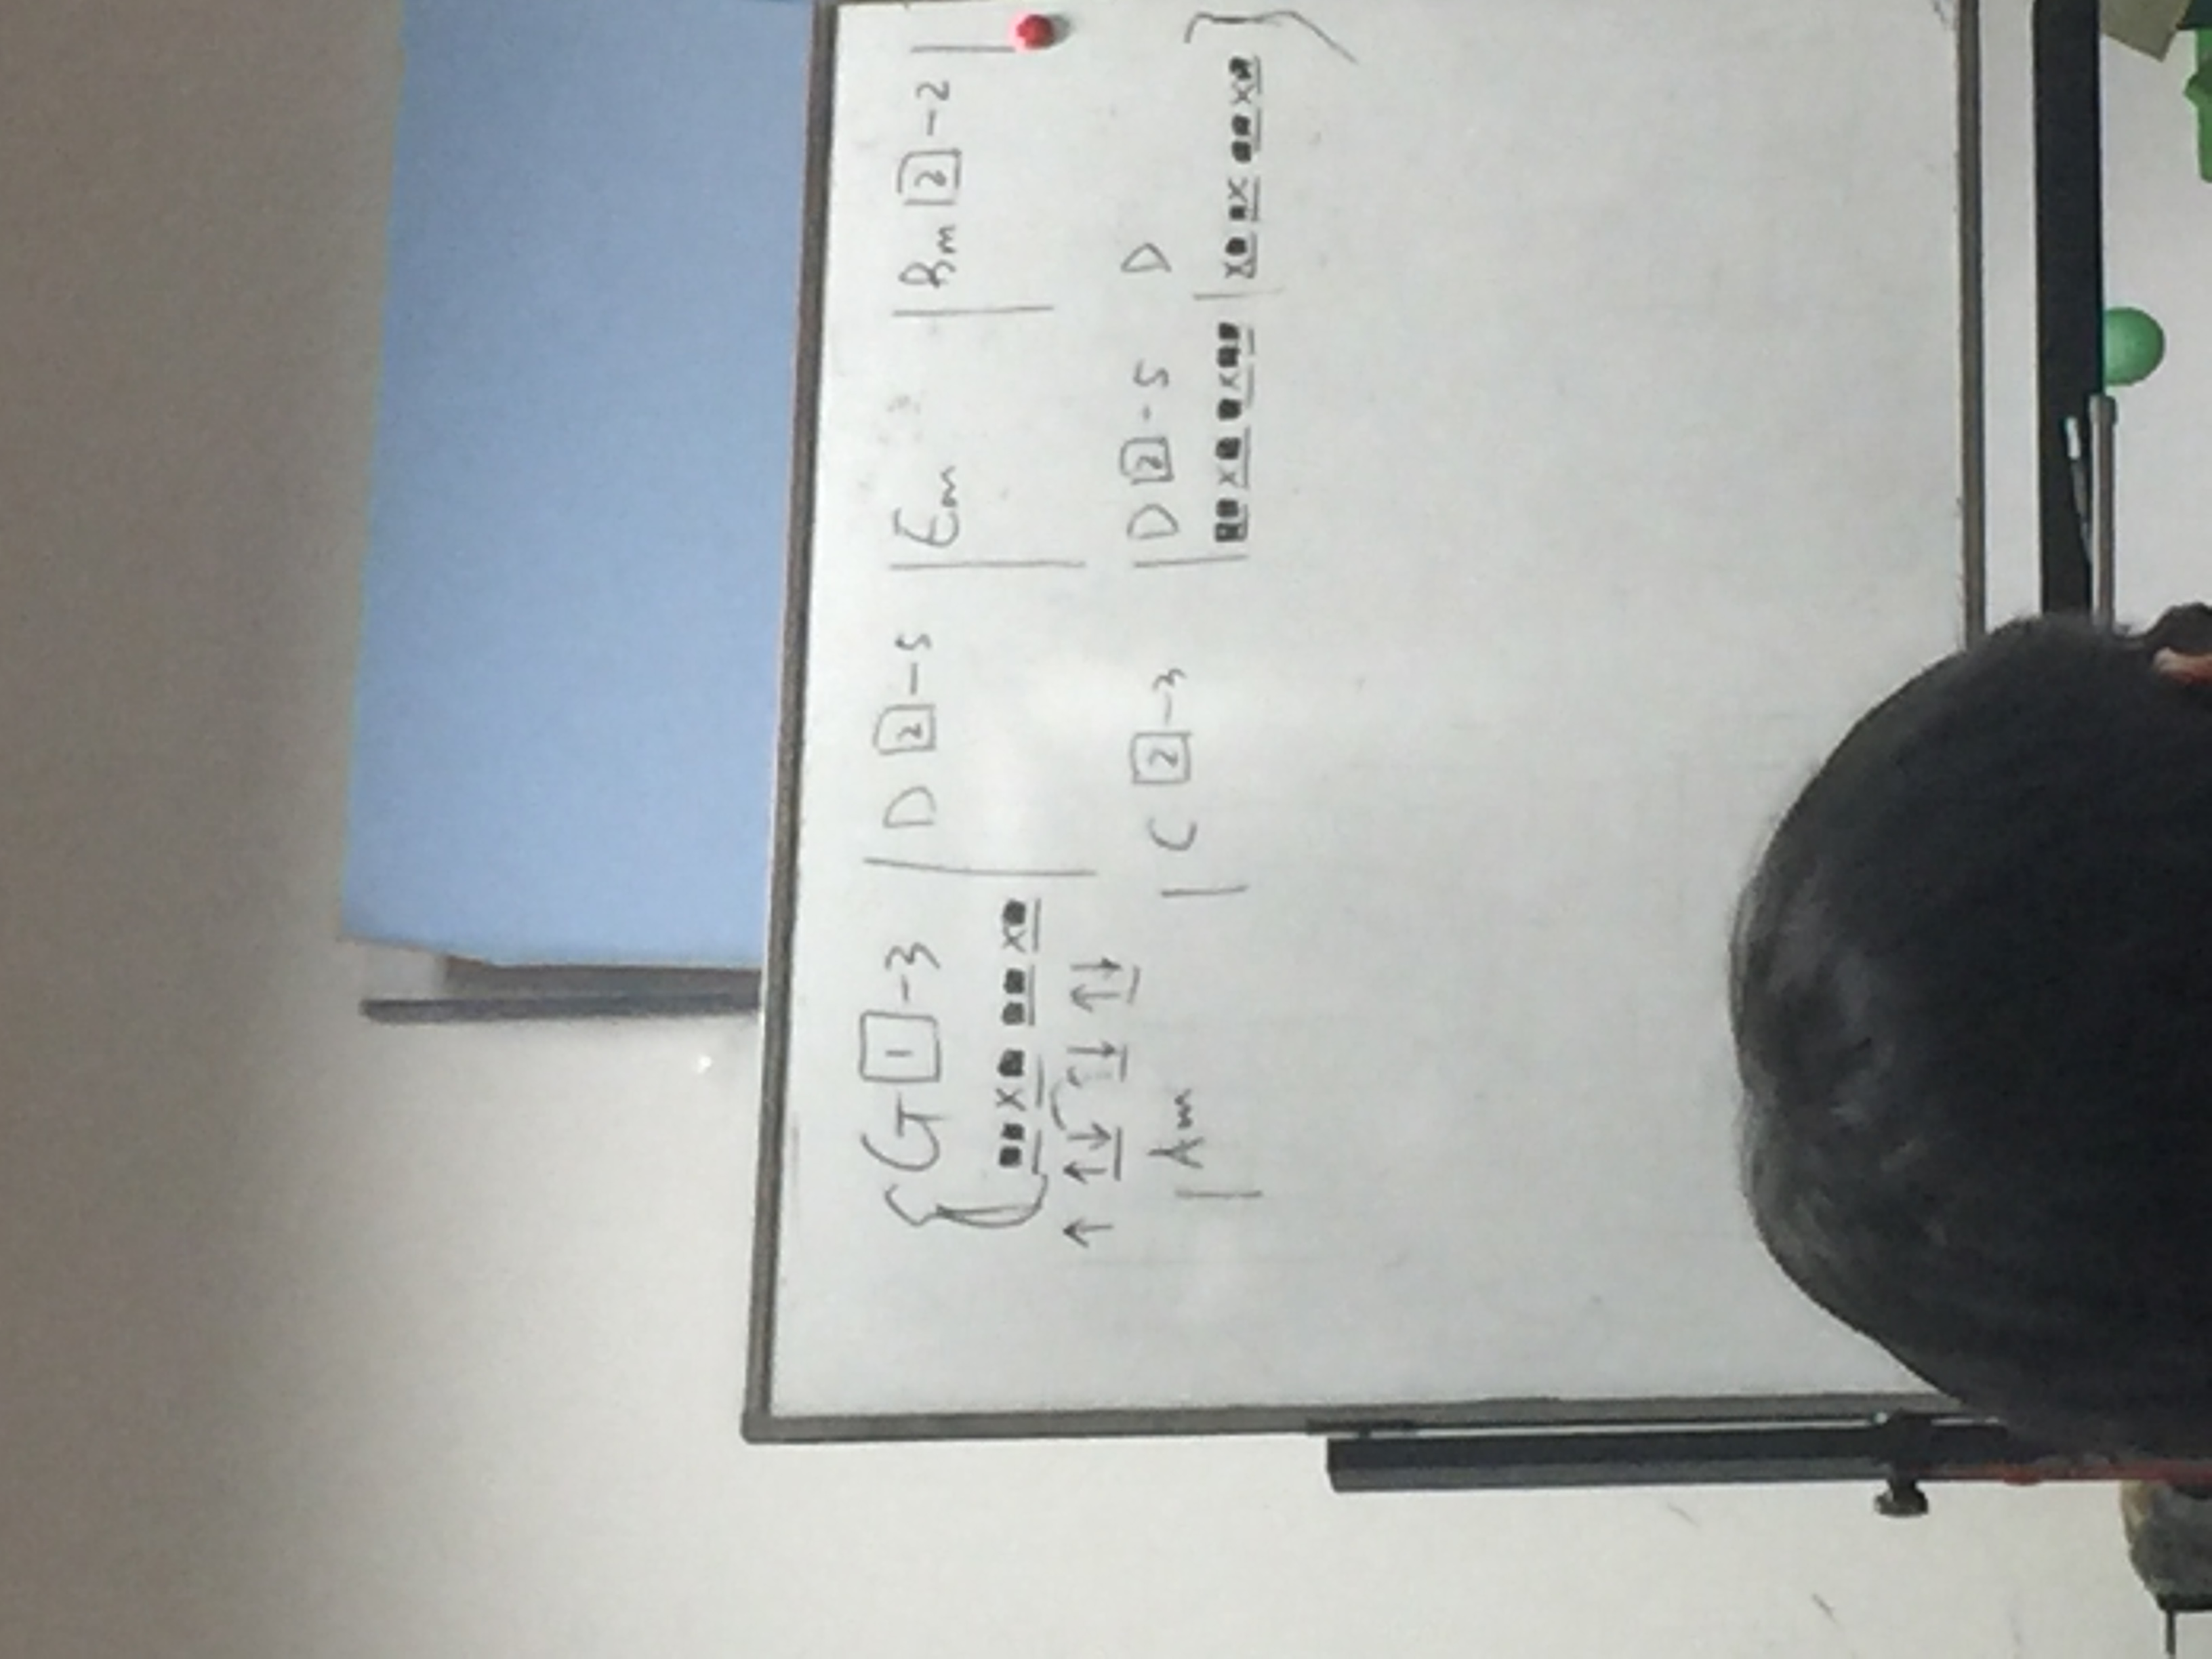 { G [1]-3 | D [2]-5 | Em | Bm [2]-2 |
■■ X■ ■■ X■
↑ ↑↓ ↑↓ ↑↓
| Am | C [2]-3 | D [2]-5 D
■■ X■ ■X ■■ | X■ ■X ■■ X■ }